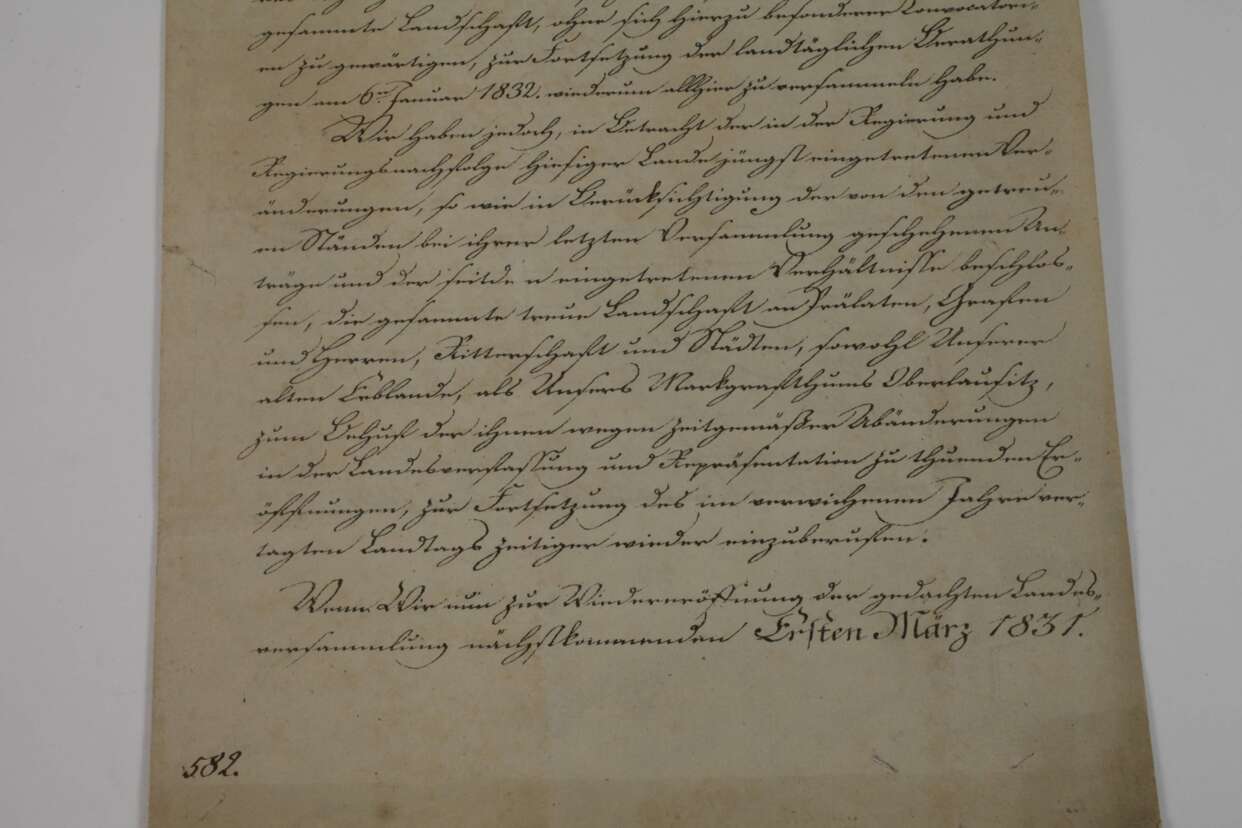 gesammte Landschaft, ohne sich hierzu besonderer Convocatori-
en zu gewärtigen, zur Fortsetzung der landtäglichen Berathun-
gen am 6ten Januar 1832. wiederum allhier zu versammeln habe.
Wir haben jedoch, in Betracht der in der Regierung und
Regierungsnachfolge hiesiger Lande jüngst eingetretenen Ver-
änderungen, so wie in Berücksichtigung der von den getreu-
en Ständen bei ihrer letzten Versammlung geschehenen An-
träge und der seitdem eingetretenen Verhältnisse beschlos-
sen, die gesammte treue Landschaft an Prälaten, Grafen
und Herren, Ritterschaft und Städten, sowohl Unserer
alten Erblande, als Unsers Markgrafthums Oberlausitz,
zum Behuf der ihnen wegen zeitgemäßer Abänderungen
in der Landesverfassung und Repräsentation zu thuenden Er-
öffnungen, zur Fortsetzung des im verwichenen Jahre ver-
tagten Landtags zeitiger wieder einzuberufen.
Wenn Wir nun zur Wiedereröffnung der gedachten Landes-
versammlung nächstkommenden Ersten März 1831.
582.